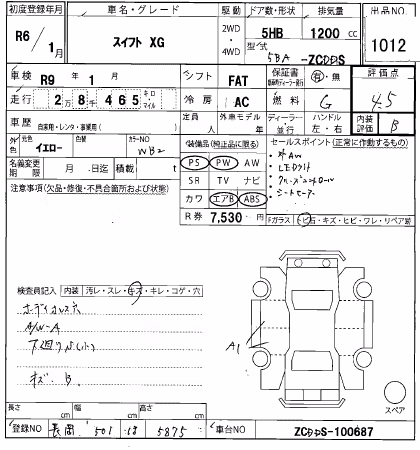 初度登録年月 車名・グレード 駆動 ドア数・形状 排気量 出品NO
R6/1月 スイフト XG 2WD・4WD 5HB 1200cc 1012
型式 5BA-ZCDDS
車検 R9年1月 シフト FAT 保証書 有・無 評価点
走行 2万8千465 キロ マイル 冷房 AC 燃料 G 4.5
車歴 自家用・レンタ・事業用( ) 定員 人 外車モデル 年 ディーラー・並行 ハンドル 左・右 内装評価 B
外色 元色 イエロー 色替 カラーNO WB2
装備品(純正品に限る) セールスポイント(正常に作動するもの)
PS PW AW
・AW
・LEDライト
名義変更期限 月 日迄 積載 t
SR TV ナビ
・クルーズコントロール
・シートヒーター
注意事項(欠品・修復・不具合箇所および状態)
カワ エアB ABS
R券 7,530円 Fガラス 飛石・キズ・ヒビ・ワレ・リペア跡
検査員記入 内装 汚レ・スレ・キズ・キレ・コゲ・穴
A/W-A
下廻り
キズ B
A1
スペア
長さ cm 幅 cm 高さ cm
登録NO 長岡 501 5875 車台NO ZCDDS-100687